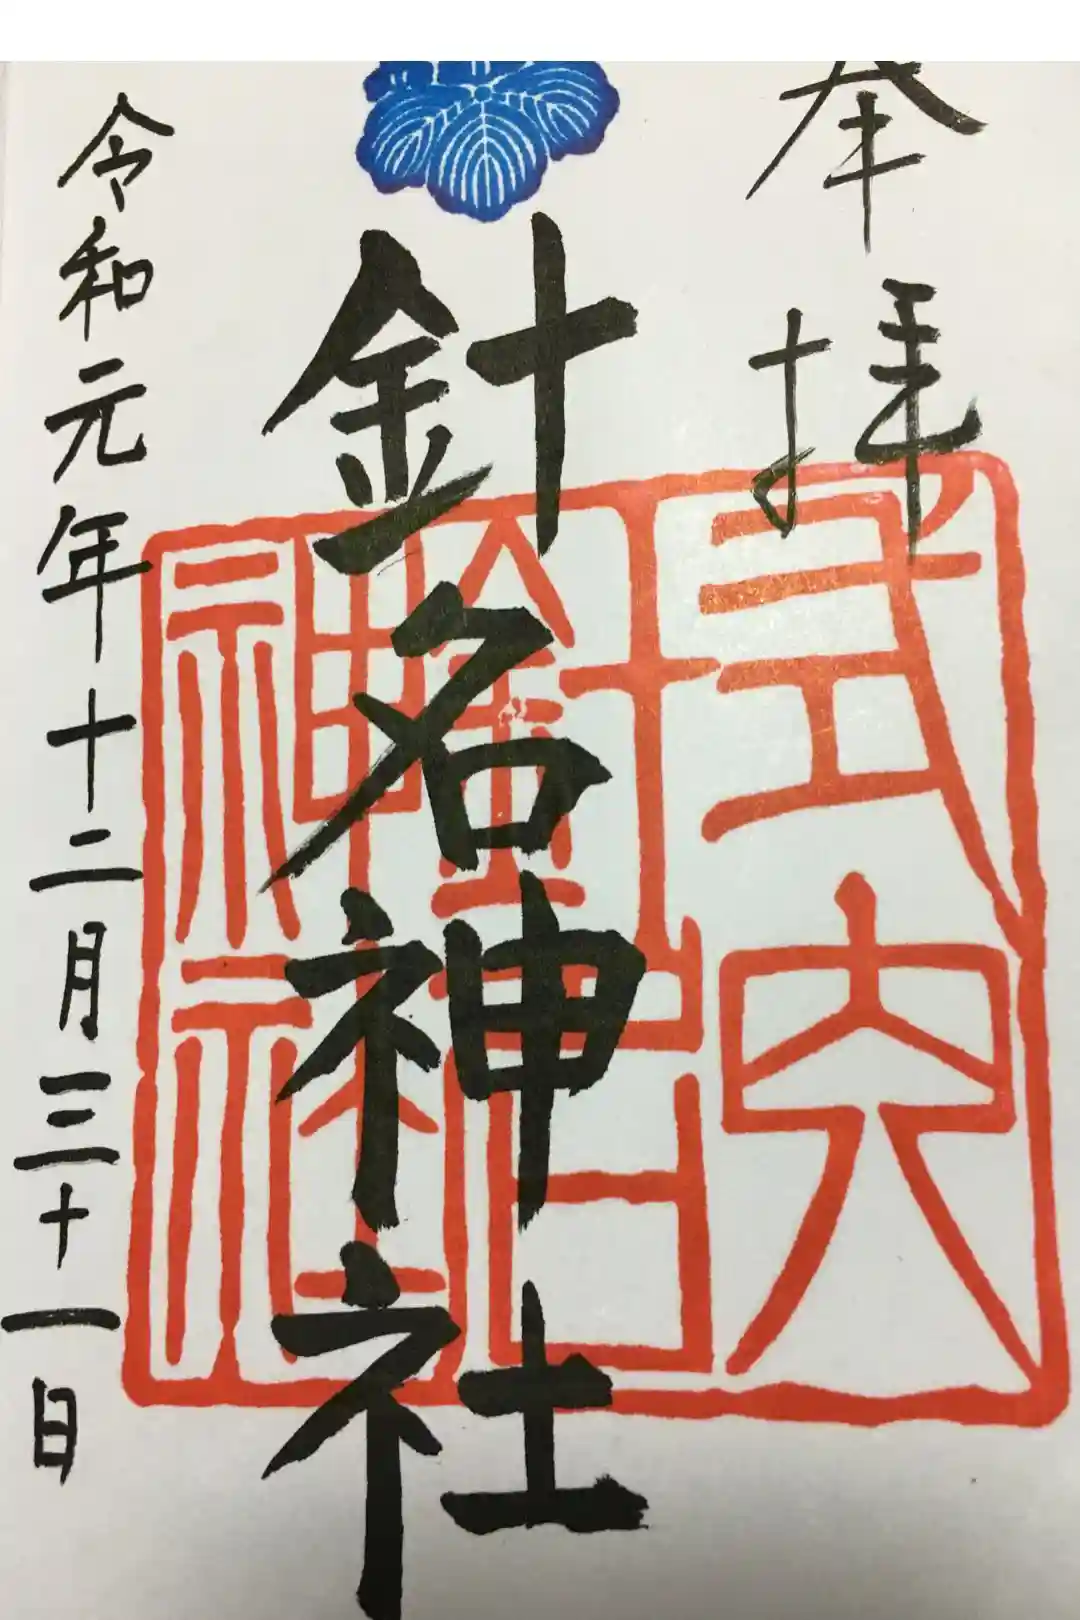 奉拝
式内
針名
神社
針名神社
令和元年十二月三十一日